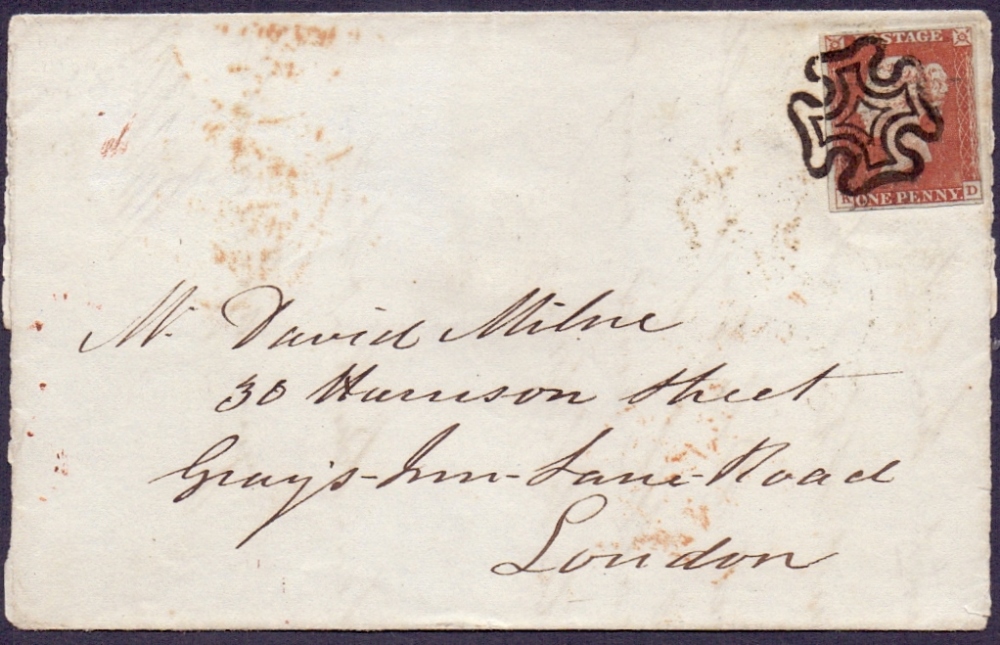 POSTAGE
K ONE PENNY. D
Mr. David Milne
30 Harrison Street
Gray's-Inn-Lane-Road
London